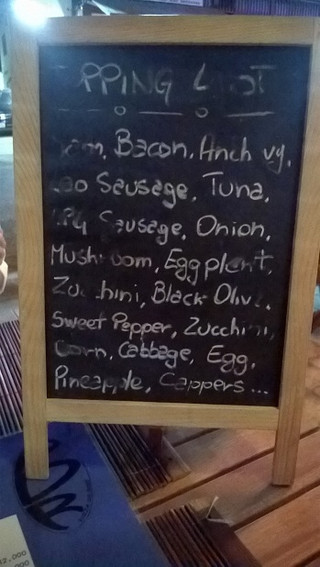 PPING
Bacon, Anch vy,
ao Sausage, Tuna,
Sausage, Onion,
Mush oom, Eggplant,
Zu hini, Black Oliv
Sweet Pepper, Zucchini,
Corn, Cabbage, Egg,
Pineapple, Cappers...